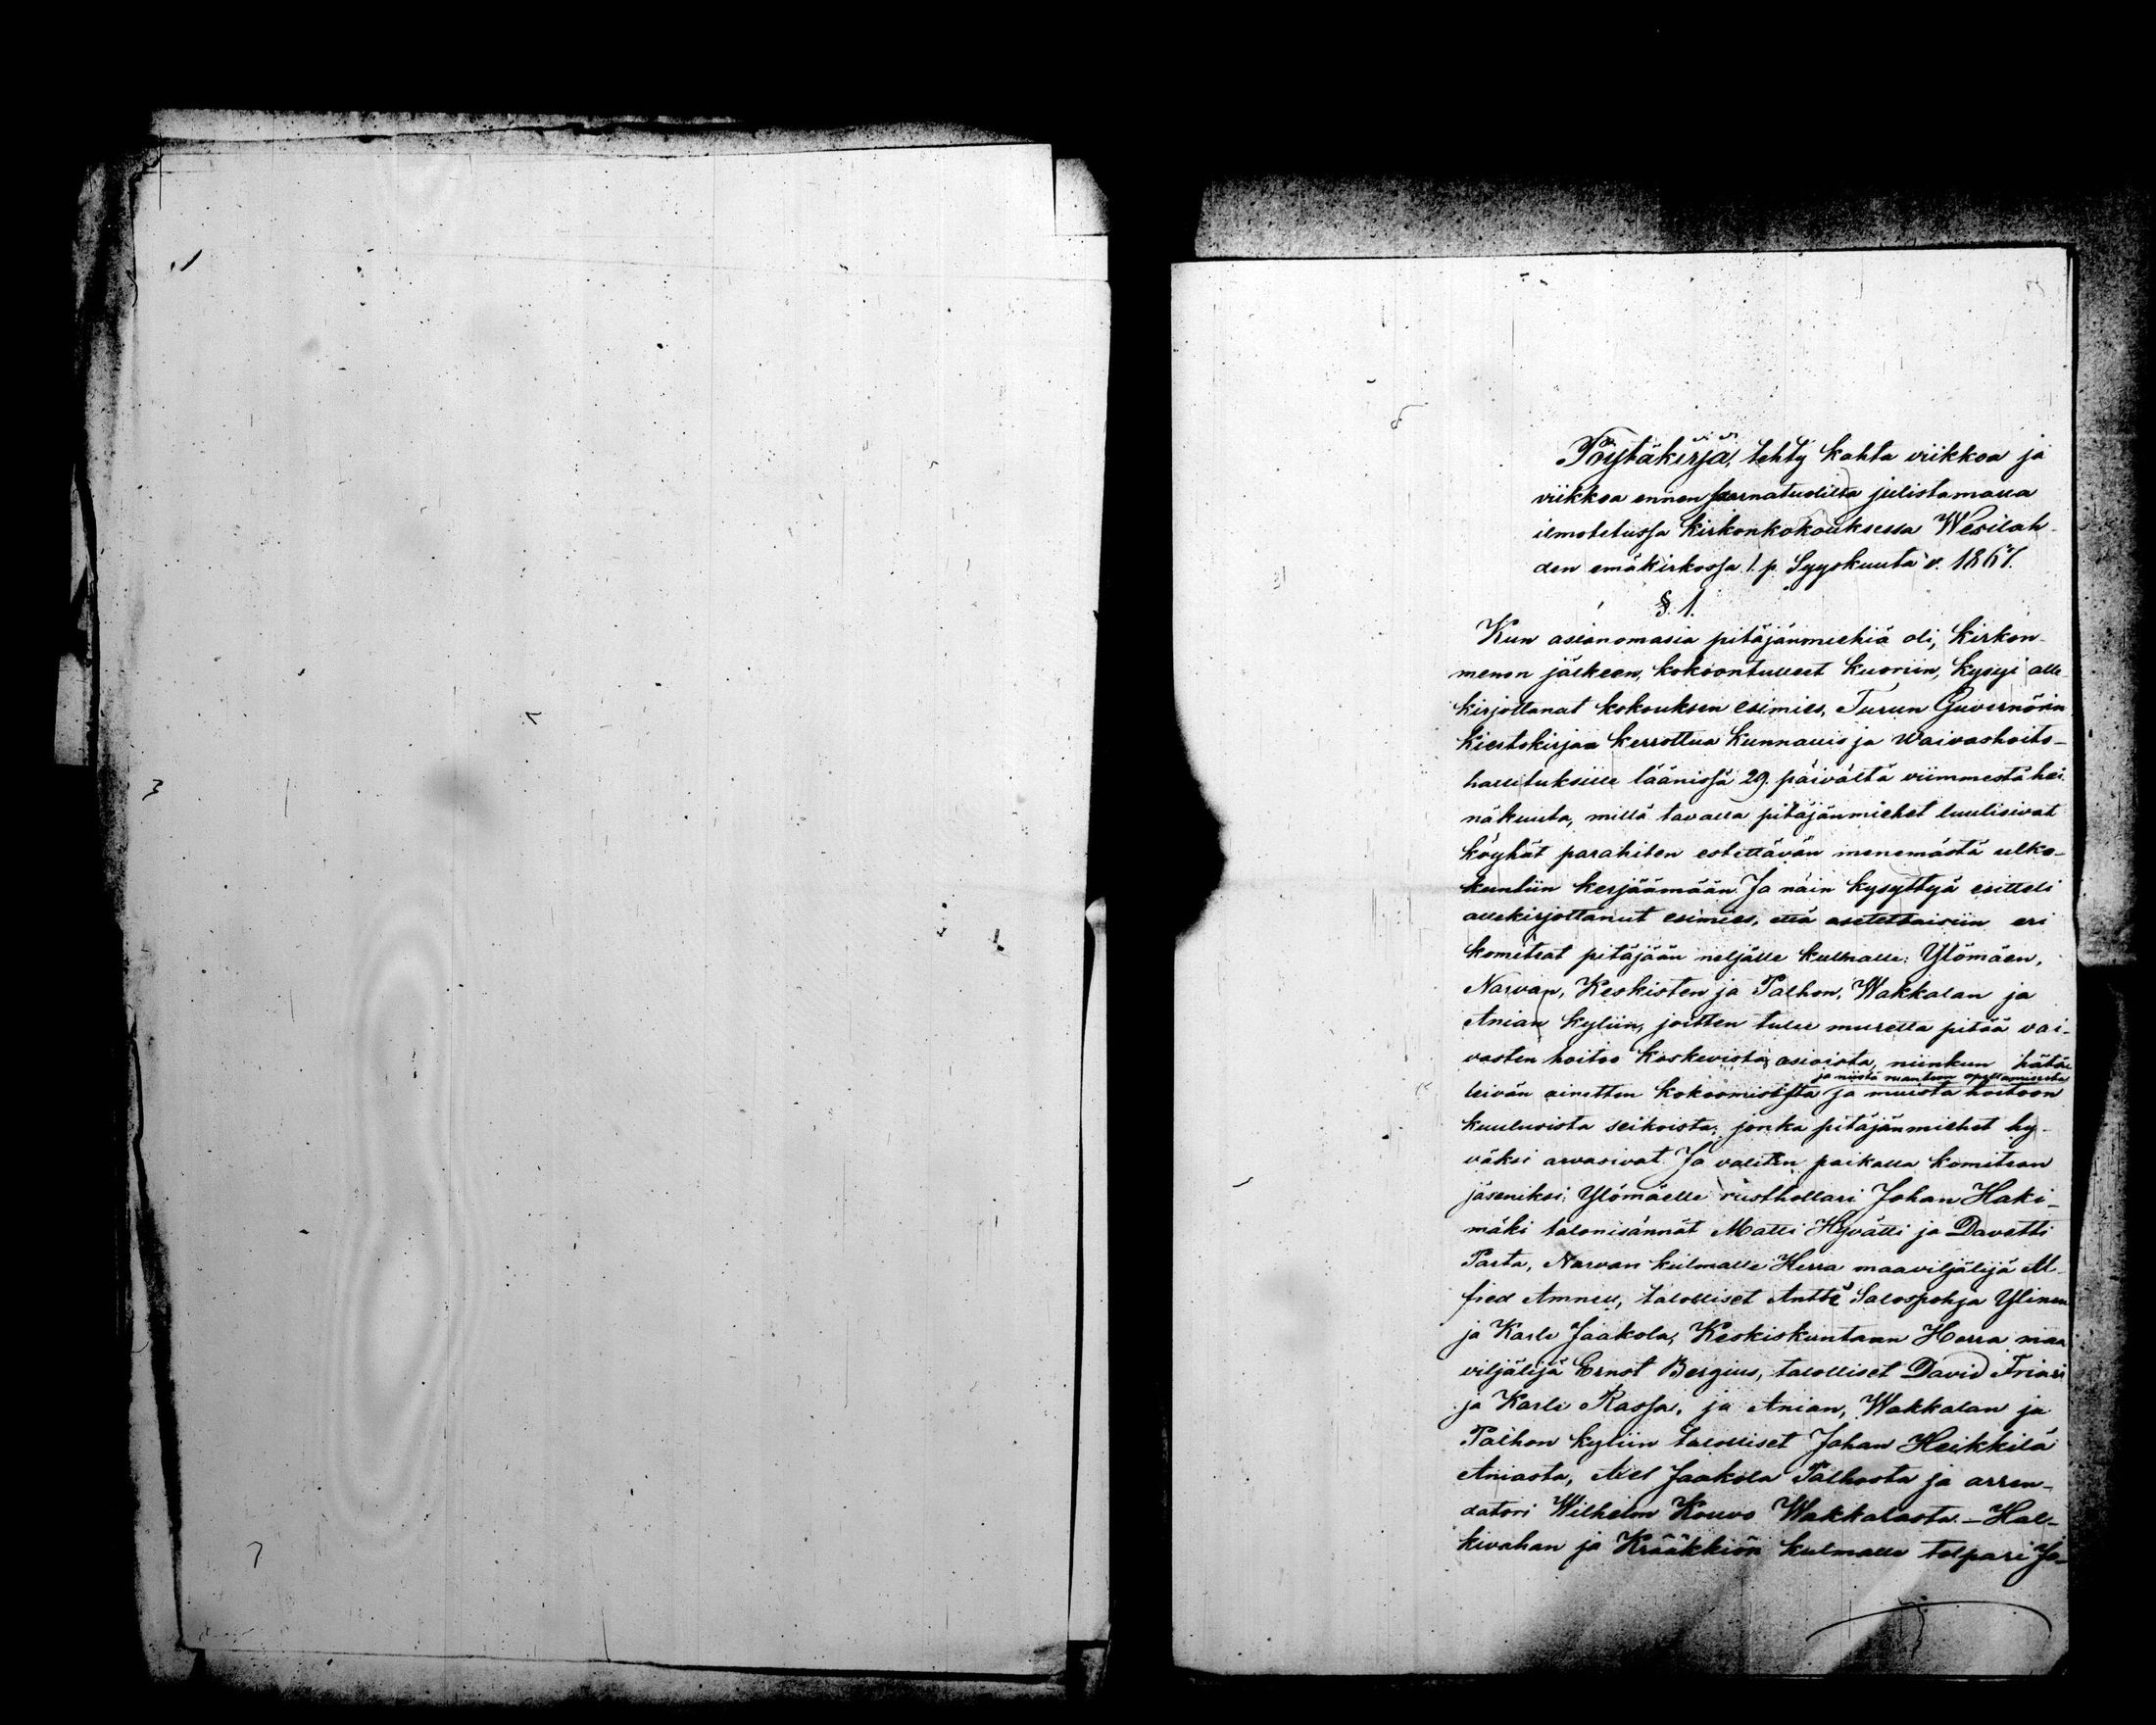 Pöytäkirja, tehty kahta viikkoa ja
viikkoa ennen saarnatuolilta julistamalla
ilmotetussa kirkonkokouksessa Wesilah-
den emäkirkossa 1. p. Syyskuuta v. 1867.
§. 1.
Kun asianomasia pitäjänmiehiä oli, kirkon-
menon jälkeen, kokoontulleet kuoriin, kysyi alle-
kirjottanut kokouksen esimies, Turun Guvernörin
kiertokirjaa kerrottua kunnallis ja waivashoito-
hallituksille läänissä 29. päivältä viimmestä hei-
näkuuta, millä tavalla pitäjänmiehet luulisivat
köyhät parahiten estettävän menemästä ulko-
kuntiin kerjäämään. Ja näin kysyttyä esitteli
allekirjottanut esimies, että asetettaisiin eri
komiteat pitäjään neljälle kulmalle: Ylömäen,
Narvan, Keskisten ja Palhon, Wakkalan ja
Anian kyliin, joitten tulee muretta pitää vai-
vasten hoitoo koskevista asioista, niinkun hätä-
ja niistä ruantuon opettamisesta
leivän ainetten kokoomisesta ja muista hoitoon
kuuluvista seikoista; jonka pitäjänmiehet hy-
väksi arvasivat. Ja valittin paikalla komitean
jäseniksi: Ylömäelle rusthollari Johan Haki-
mäki talonisännät Matti Hyvätti ja Davetti
Parta, Narvan kulmalle Herra maaviljälijä Al-
fred Amnell, talolliset Antti Salospohja Ylinen
ja Karle Jaakola, Keskiskuntaan Herra maa
viljälijä Ernst Bergius, talolliset David Friari
ja Karle Rassa, ja Anian, Wakkalan ja
Palhon kyliin talolliset Johan Heikkilä
Aniasta, Axel Jaakola Palhosta ja arren-
datori Wilhelm Kouvo Wakkalasta. – Hal-
kivahan ja Krääkkiön kulmalle tolpari Jo-